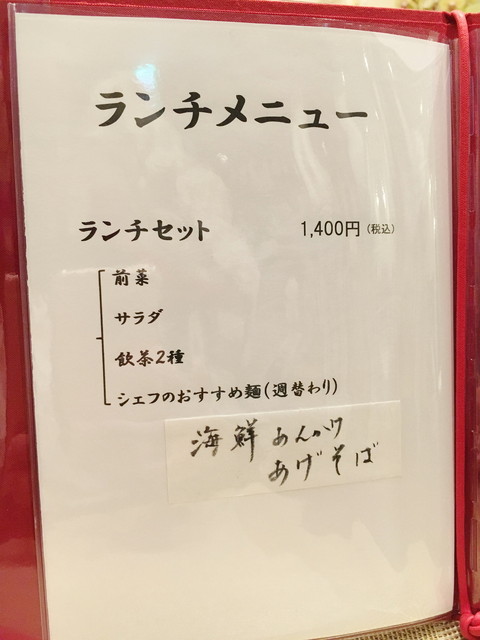 ランチメニュー
ランチセット 1,400円(税込)
前菜
サラダ
飲茶2種
シェフのおすすめ麺(週替わり)
海鮮あんかけ
あげそば